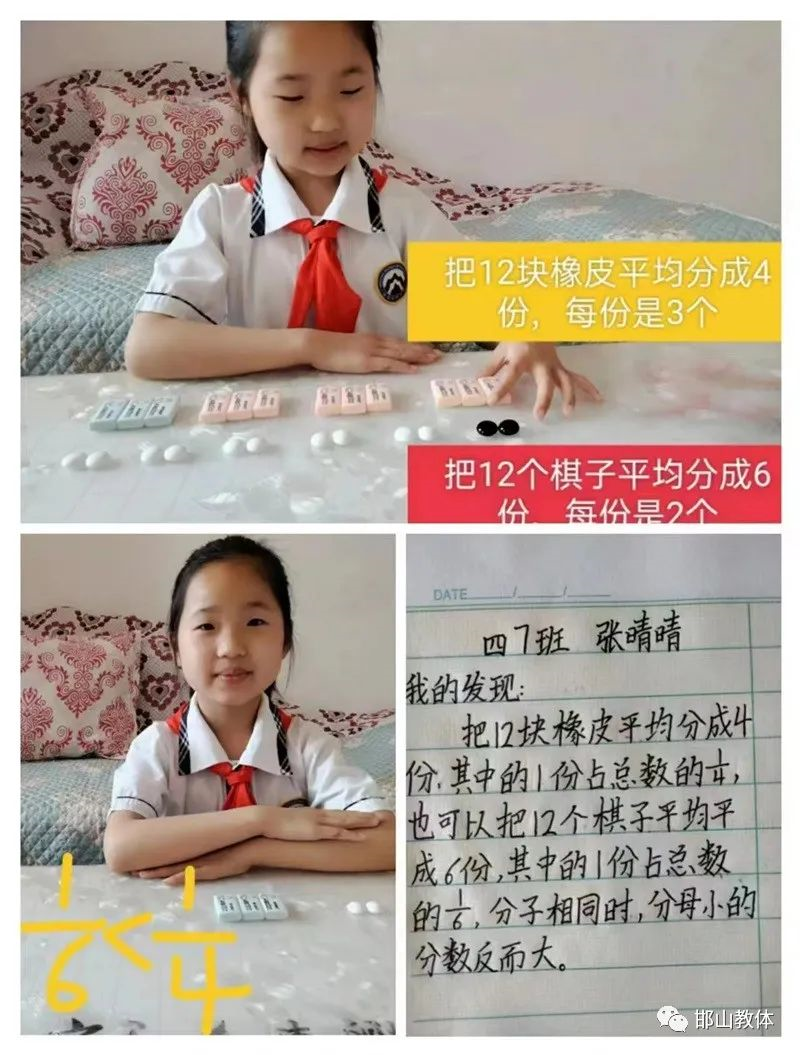 把12块橡皮平均分成4
份，每份是3个
把12个棋子平均分成6
份，每份是2个
1/6<1/4
DATE
四7班 张晴晴
我的发现：
把12块橡皮平均分成4
份，其中的1份占总数的1/4，
也可以把12个棋子平均平
成6份，其中的1份占总数
的1/6，分子相同时，分母小的
分数反而大。
邯山教体